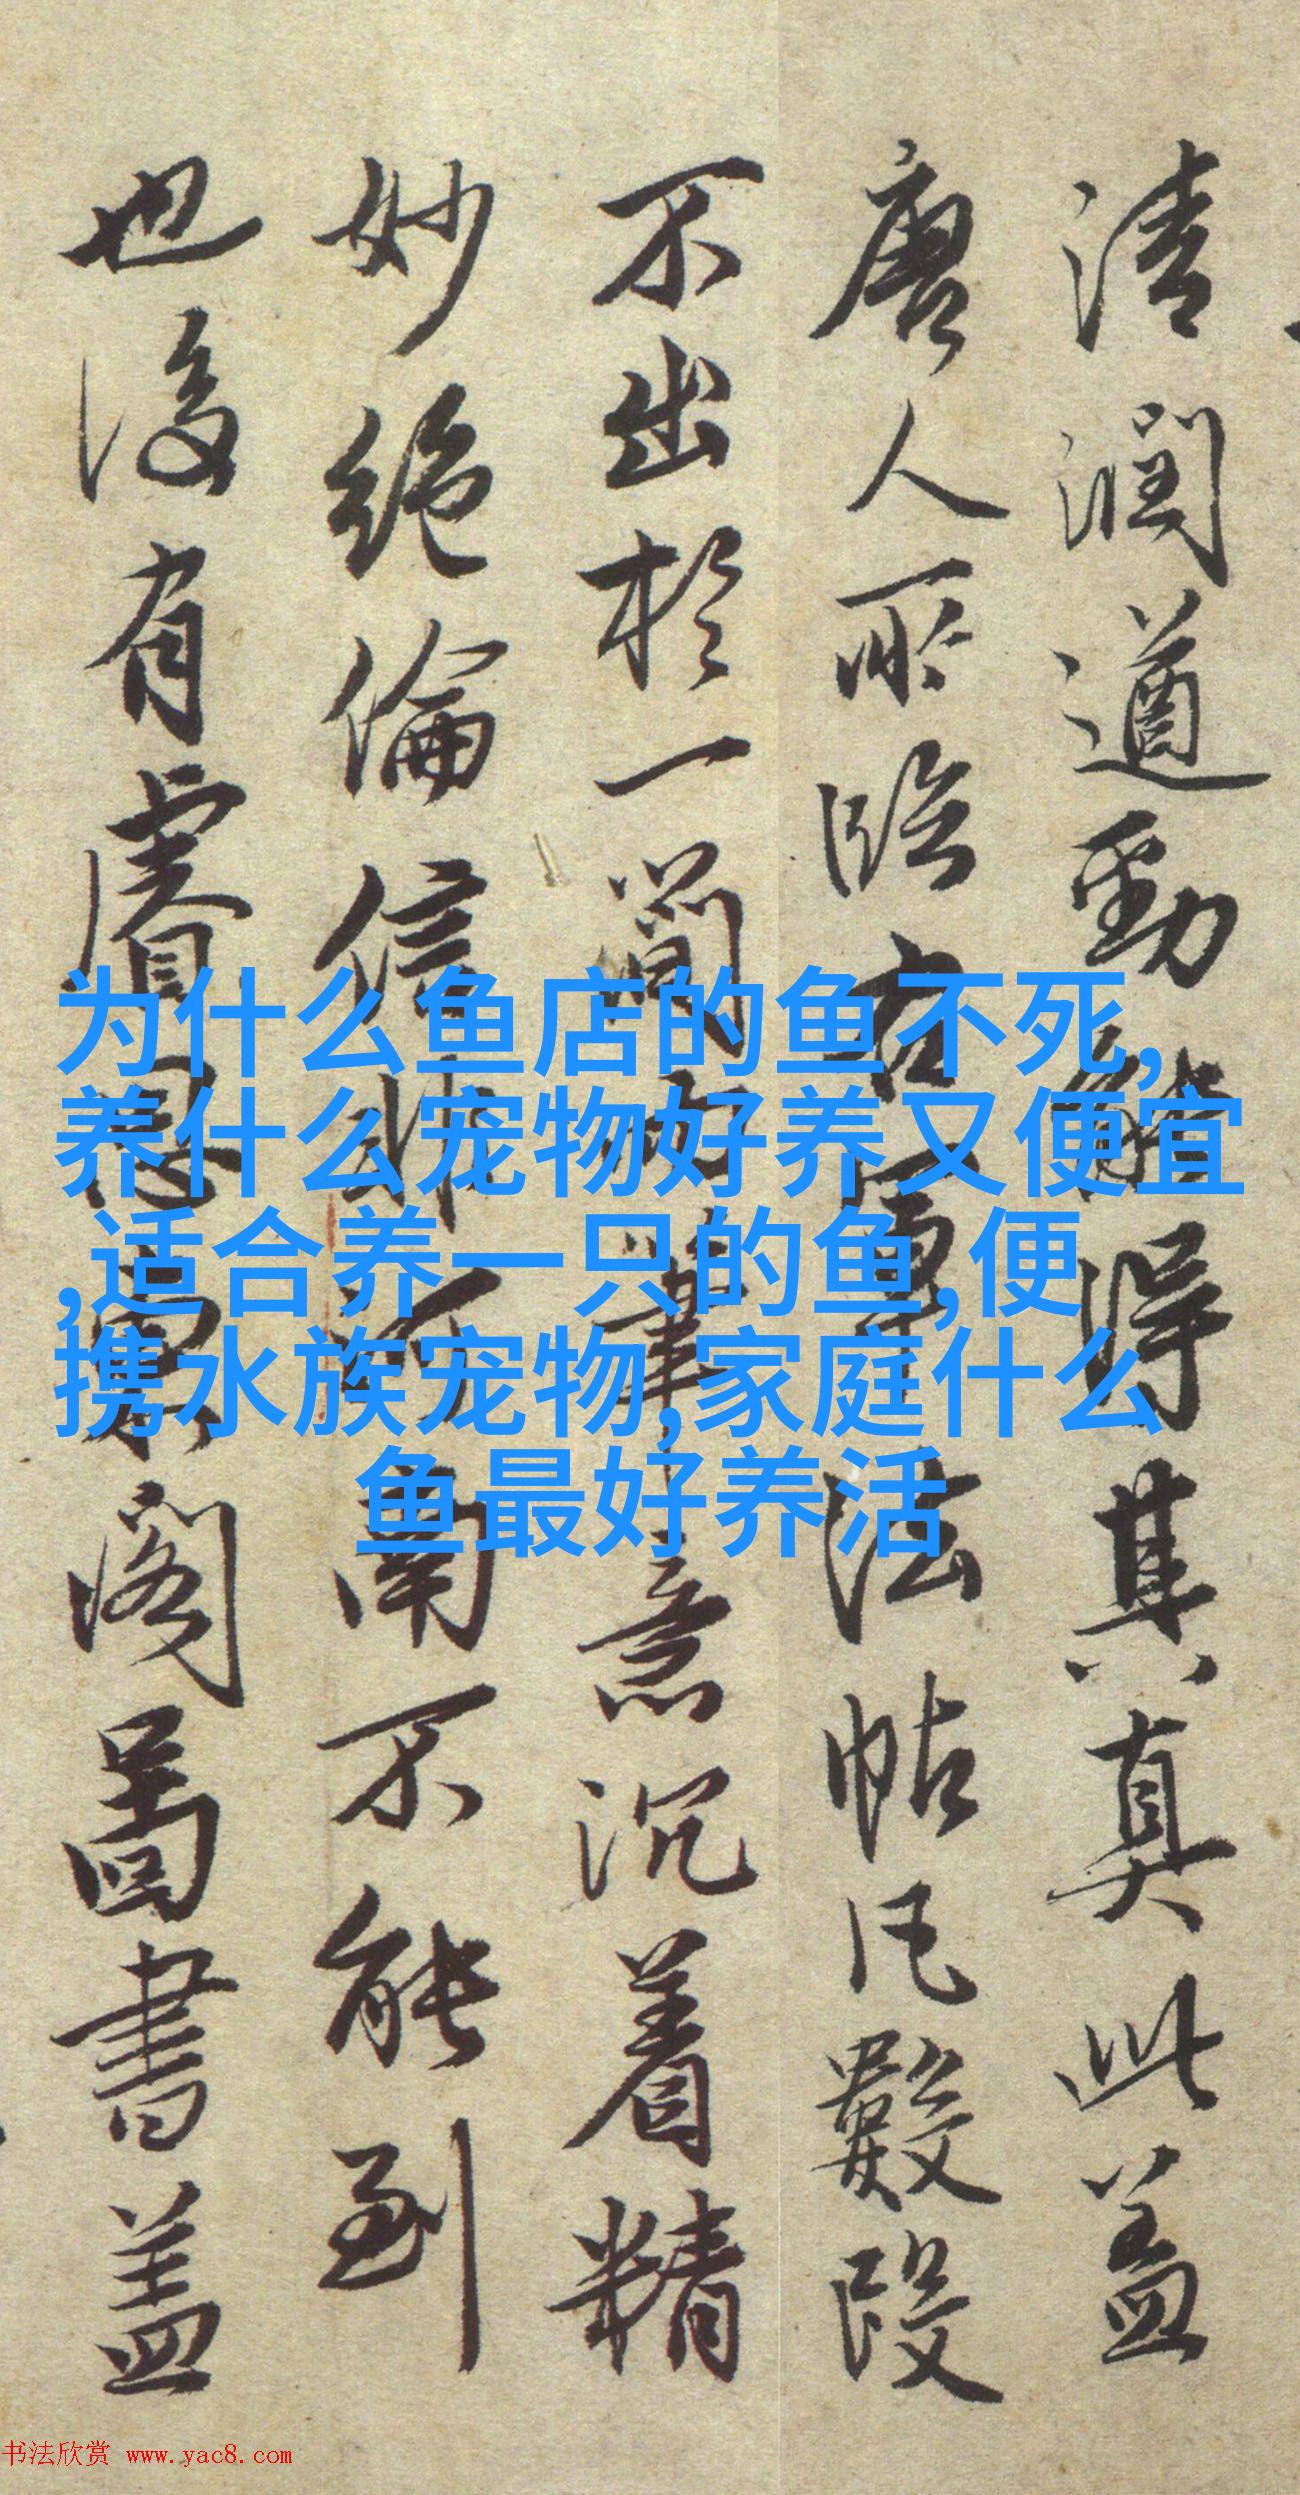 清潤遒勁能得其真此蓋
唐人所臨右軍法帖凡數段
不出於一簡筆意沉着精
妙絕倫信非河南不能到
也後有睿思東閣圖書蓋
为什么鱼店的鱼不死,
养什么宠物好养又便宜
,适合养一只的鱼,便
携水族宠物,家庭什么
鱼最好养活
书法欣赏 www.yac8.com